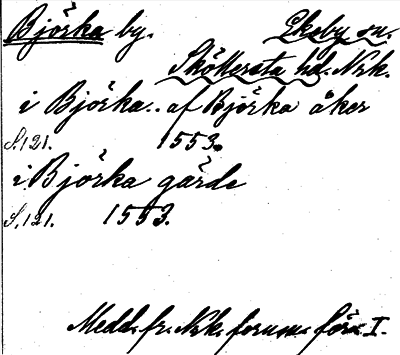 Björka by. Ekeby sn.
Sköllersta hd. Nrk.
i Björka.. af Björka åker
S.121. 1553.
i Björka gärde
S.121. 1553.
Medd. fr. Nrk. fornm. fören I.